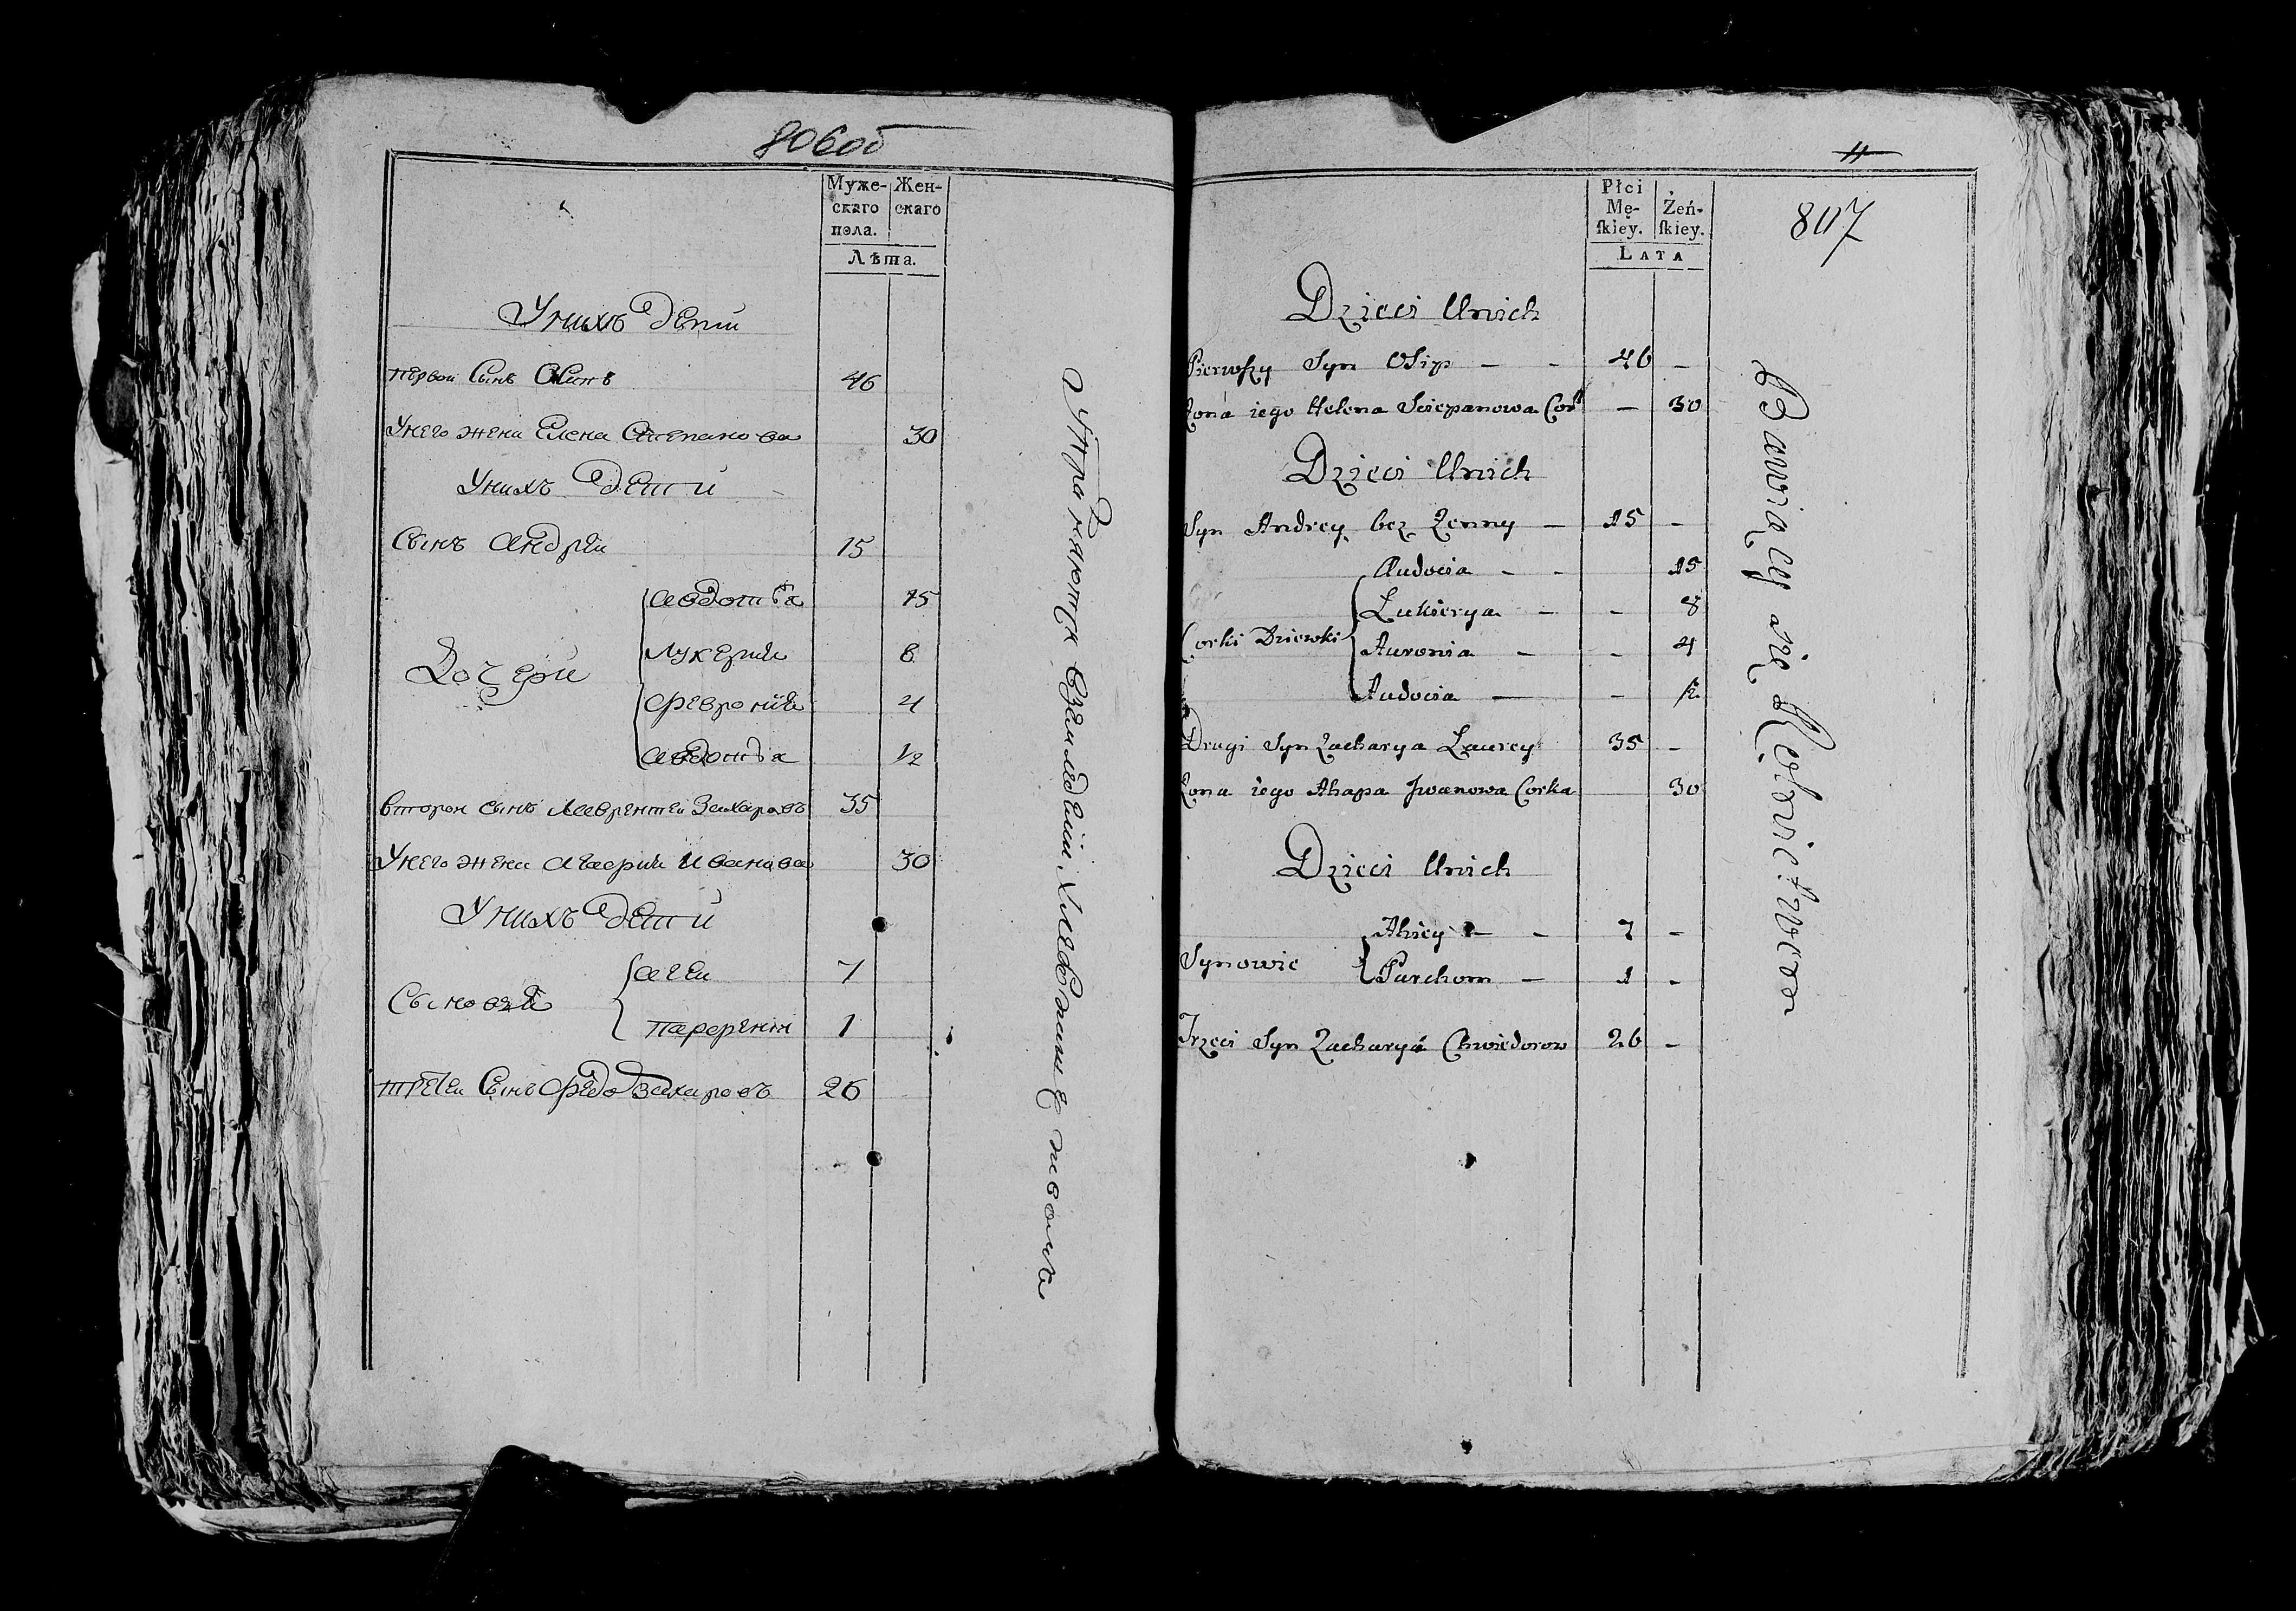 806об
Муже- Жен-
скаго скаго
пола.
Лѣта.
У нихъ дети
первой Сынъ Осипъ 46
У него жена Елена Степанова 30
У нихъ дети
Сынъ Андреи 15
Дочери
Авдотья 15
Лукерия 8
Феврония 4
Авдотья 1/2
второи сынъ Лаврентеи Захаровъ 35
У него жена Агафия Иванова 30
У нихъ дети
Сыновья
Агеи 7
Парфенти 1
третеи Сынъ Федо Захаровъ 26
Упражняются Вземледелии, Хлебопашествомъ
11
Płci
Mę- Żeń-
ſkiey. ſkiey.
LATA
807
Dzieci Unich
Pierwſzy Syn OSip — - 46 -
Zona iego Helena Sciepanowa Cor — 30
Dzieci Unich
Syn Andrey bez Zenny — 15 -
Corki Dziewki
Audocia - - 15
Lukierya — - 8
Auronia — - 4
Audocia — - 1/2
Drugi Syn Zacharya Laurey 35 -
Zona iego Ahapa Jwanowa Corka 30
Dzieci Unich
Synowie
Ahiey — - 7 -
Parchom — 1 -
Trzeci Syn Zacharya Chwiedorow 26 -
Bawiący się Rolnictwem